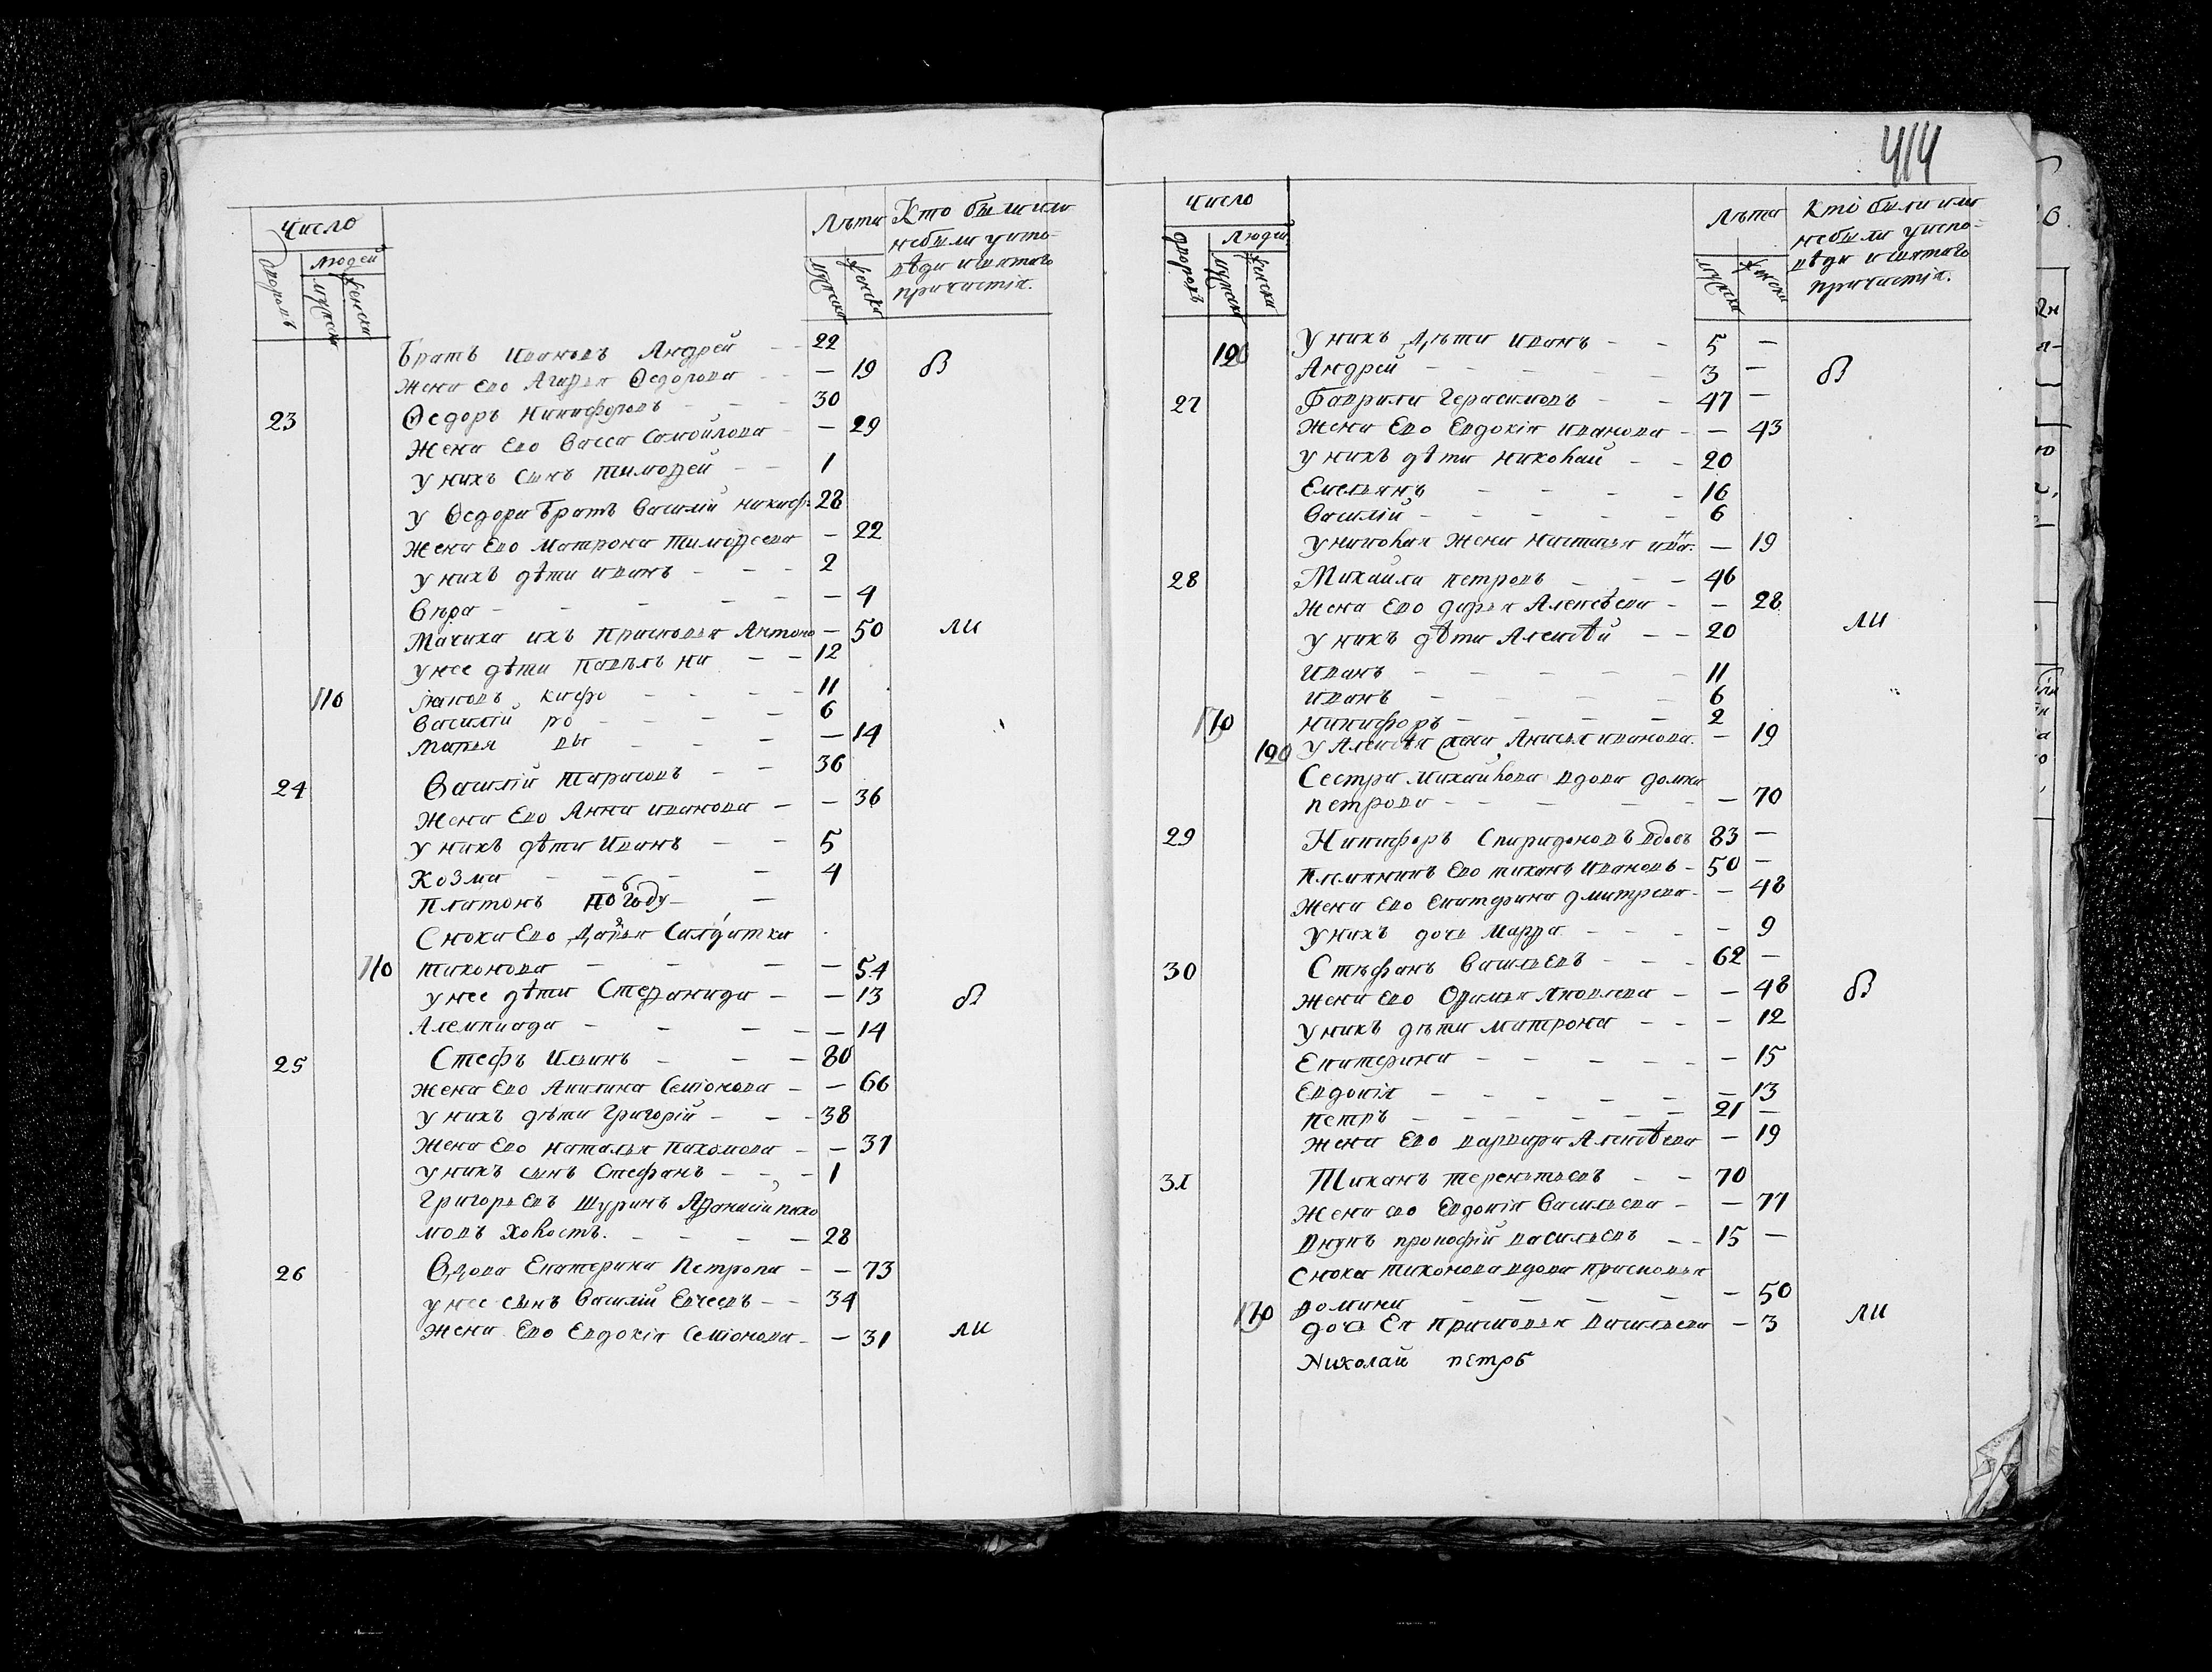 Число
Людей
дворовъ
мужеска
женска
Лѣта
мужеска
женска
Кто были или
небыли уиспо-
вѣди исвятаго
причастія.
Братъ Ивановъ Андрей — 22
Жена Ево Агафья Ѳедорова — 19 б
23 Ѳедоръ Никифоровъ — 30
Жена Ево Васса Самойлова — 29
У нихъ сынъ Тимофей — 1
У Ѳедора братъ Василій Никиф: 28
Жена Ево Матрона Тимофеева — 22
У нихъ дѣти Иванъ — 2
Вѣра — 4
Мачиха ихъ Прасковья Антоно — 50 ли
У нее дѣти Павелъ ни — 12
110 Яковъ кифо — 11
Василій ро — 6
Марья вы — 14
24 Василій Тарасовъ — 36
Жена Ево Анна Иванова — 36
У нихъ дѣти Иванъ — 5
Козма — 4
Платонъ по году —
Сноха Ево Дарья Салдатка
110 Тихонова — 54
У нее дѣти Стефанида — 13 б
Алемпиада — 14
25 Стефъ Ильинъ — 80
Жена Ево Акилина Семіонова — 66
У нихъ дѣти Григорій — 38
Жена Ево Наталья Пахомова — 31
У нихъ сынъ Стефанъ — 1
Григорьевъ Шуринъ Афанасій пахо
мовъ холостъ. — 28
26 Вдова Екатерина Петрова — 73
У нее сынъ Василій — 34
Жена Ево Евдокія Семіонова — 31 ли
414
Число
Людей
дворовъ
мужеска
женска
Лѣта
мужеска
женска
Кто были или
небыли уиспо-
вѣди исвятаго
причастія.
120 У нихъ Дѣти Иванъ — 5 —
Андрей — 3 — б
27 Гаврила Герасимовъ — 47 —
Жена Ево Евдокія Иванова — 43
У нихъ дѣти Николай — 20
Емельянъ — 16
Василій — 6
У николая Жена Настасья ива: — 19
28 Михаила Петровъ — 46
Жена Ево Дарья Алексѣева — 28
У нихъ дѣти Алексѣй — 20 ли
Иванъ — 11
Иванъ — 6
170 Никифоръ — 2
120 У Алексѣя жена Анисья иванова. — 19
Сестра Михайлова вдова домна
петрова — 70
29 Никифоръ Спиридоновъ вдовъ 83 —
Племянникъ Ево тихонъ Ивановъ — 50 —
Жена Ево Екатерина дмитрева — 48
У нихъ дочь Марфа — 9
30 Стефанъ Васильевъ — 62 —
Жена Ево Яковлева — 48 б
У нихъ дѣти Матрона — 12
Екатерина — 15
Евдокія — 13
Петръ — 21 —
Жена Ево Варвара Алексѣева — 19
31 Тихонъ Терентьевъ — 70
Жена ево Евдокія Васильева — 77
Внукъ прокофій васильевъ — 15 —
Сноха тихонова вдова прасковья
— 50
170 дочь Ея прасковья Васильева — 3 ли
Николай петръ